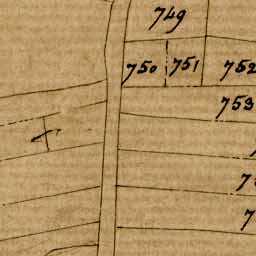 749
750 751 752
753